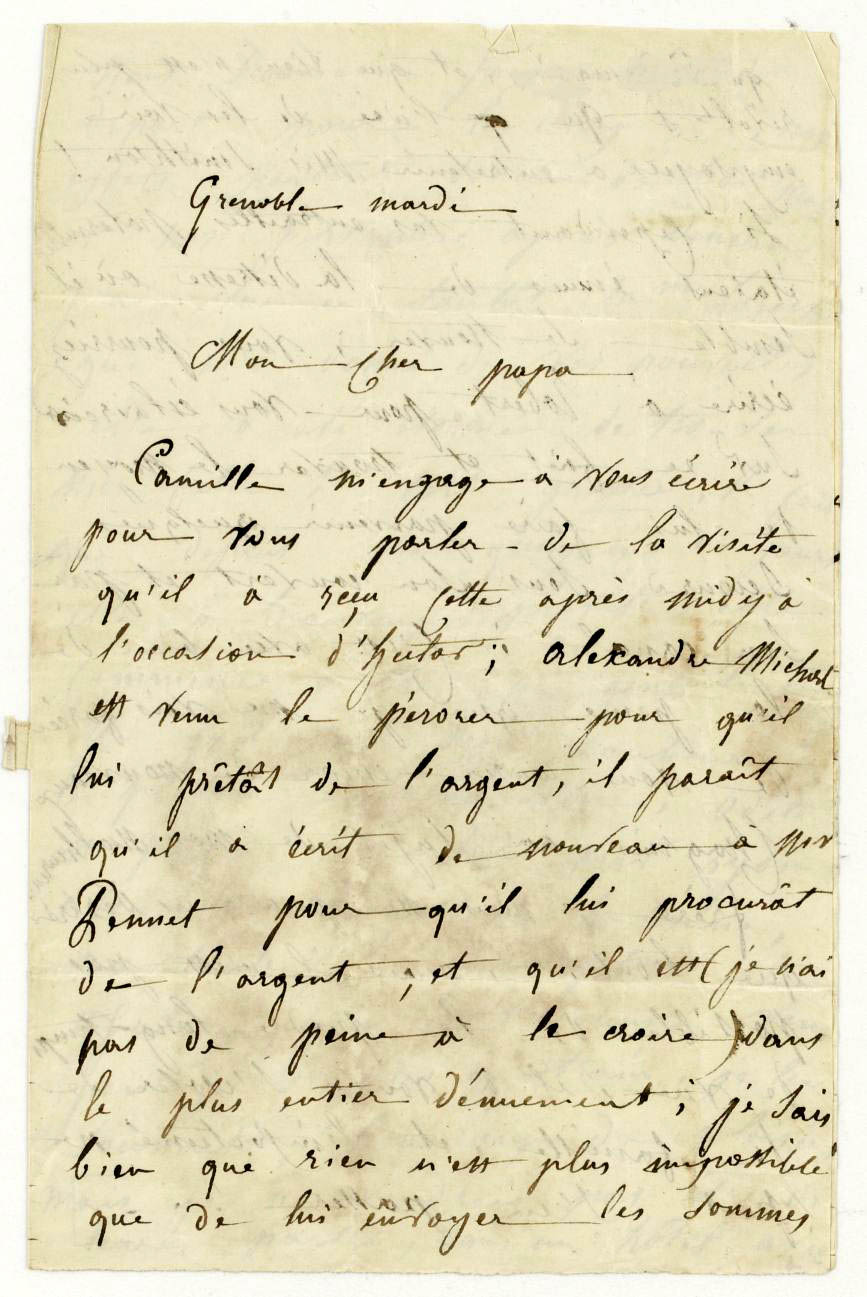 Grenoble mardi
Mon Cher papa
Camille m'engage à vous écrire
pour vous parler de la visite
qu'il à reçu cette après midy à
l'occasion d'hector ; alexandre Michal
est venu le pérorer pour qu'il
lui prêtât de l'argent, il paraît
qu'il a écrit de nouveau à mr
Pennet pour qu'il lui procurât
de l'argent ; et qu'il est (je n'ai
pas de peine à le croire) dans
le plus entier dénuement ; je sais
bien que rien n'est plus impossible
que de lui envoyer les sommes